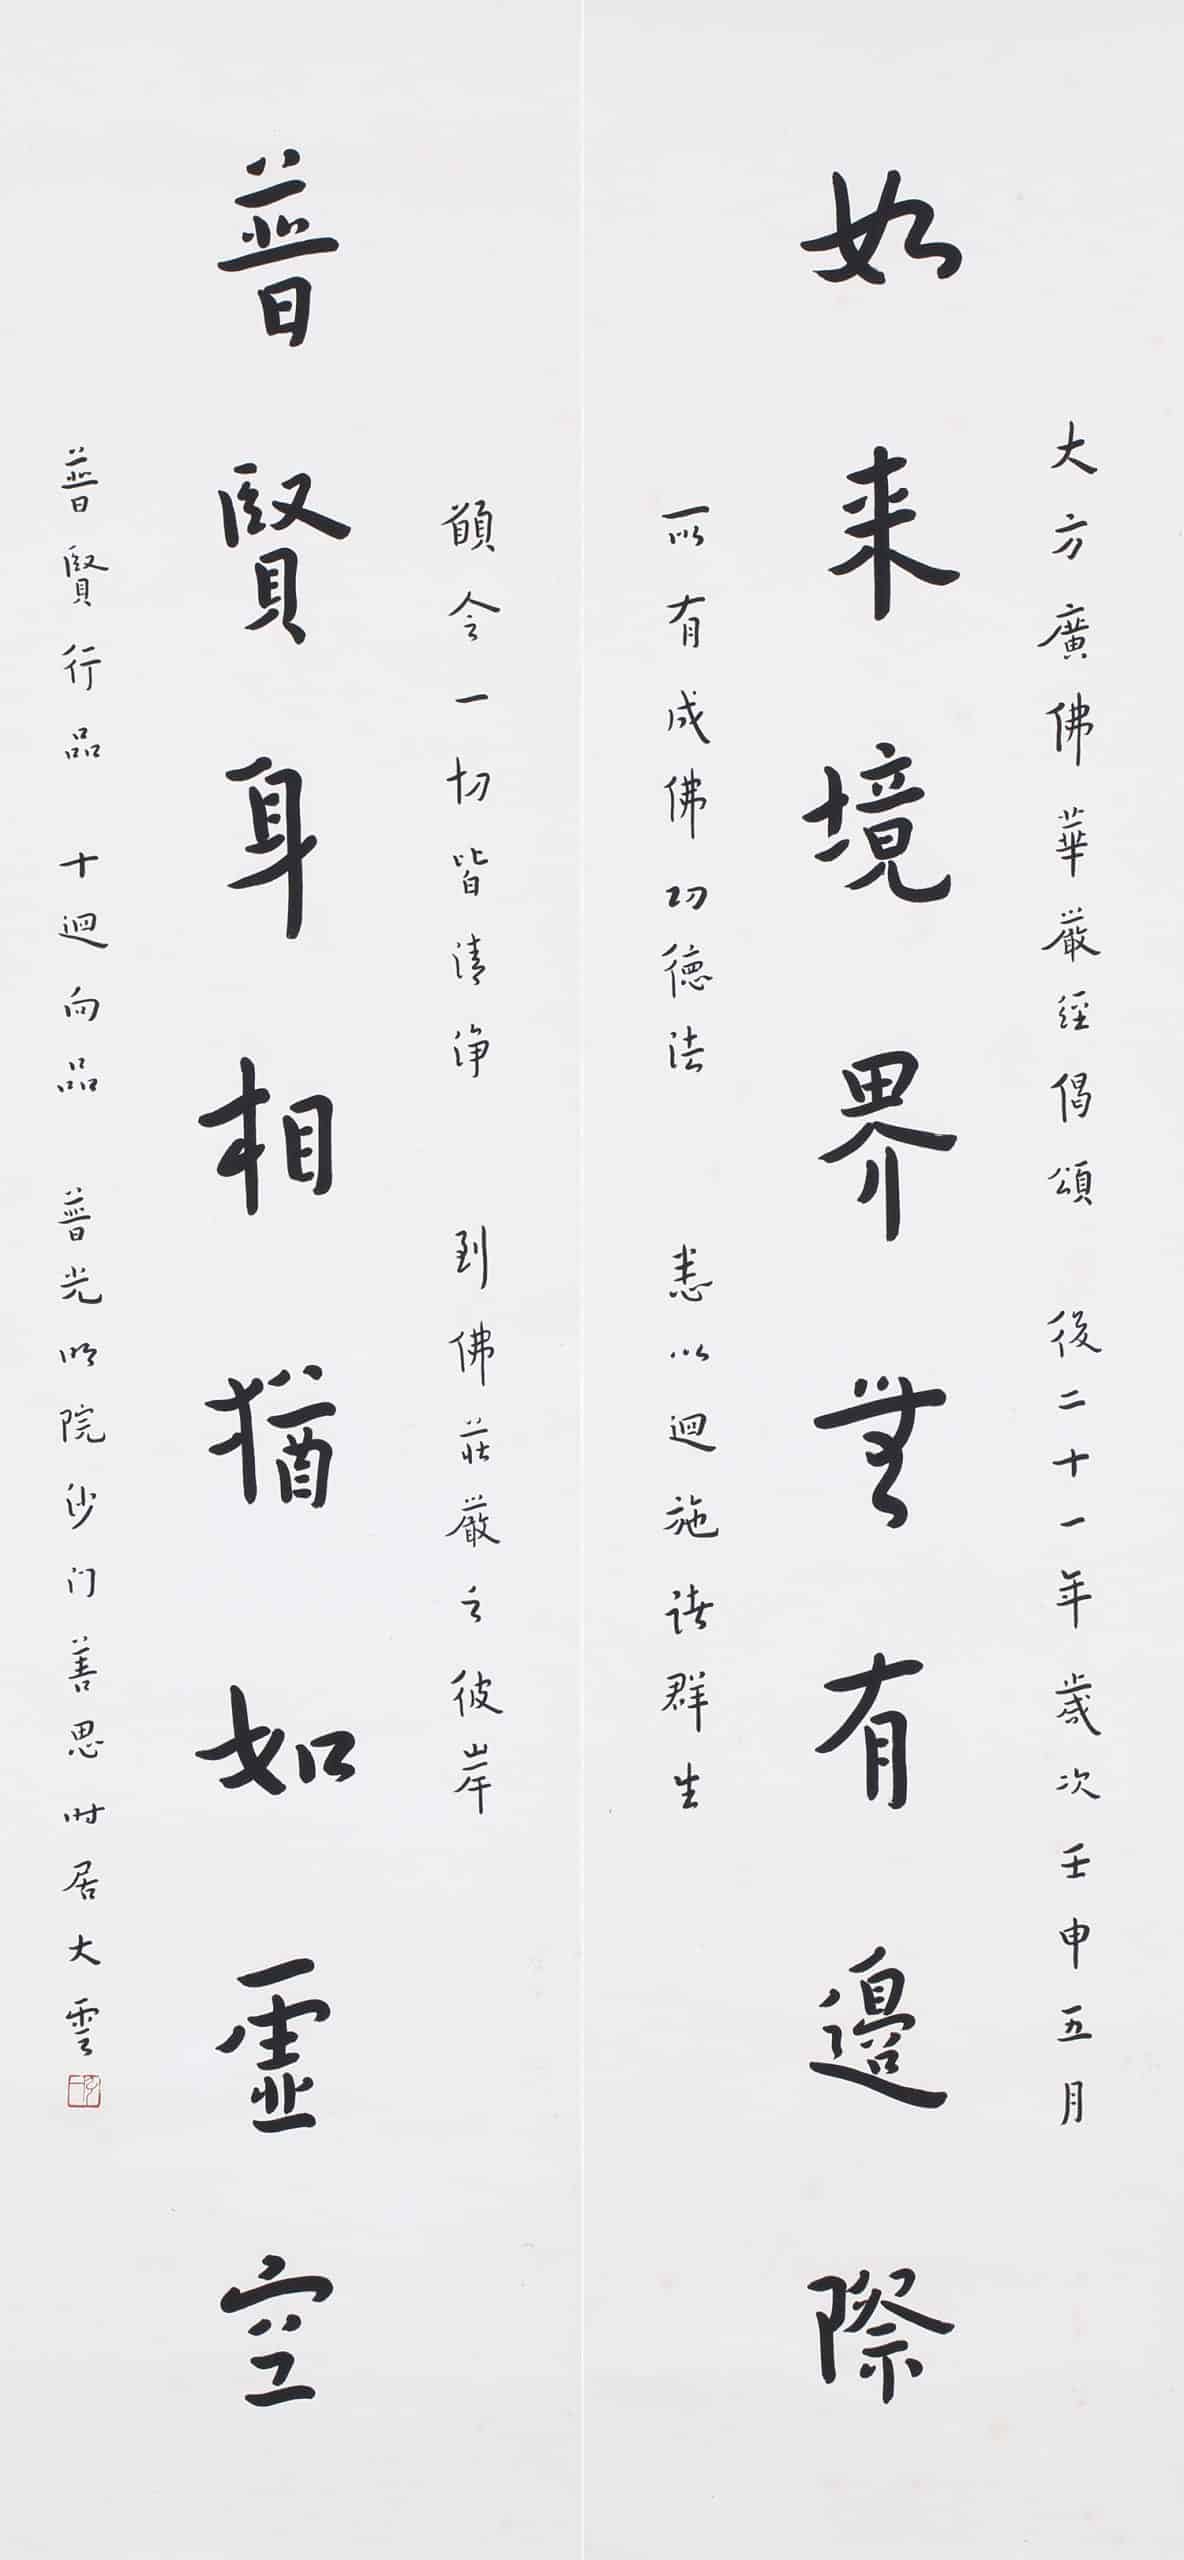 大方廣佛華嚴經偈頌　後二十一年歲次壬申五月
如來境界無有邊際
所有成佛功德法　悉以迴施諸群生
願令一切皆清淨　到佛莊嚴之彼岸
普賢身相猶如虛空
普賢行品　十迴向品　普光明院沙门善思時居大雲